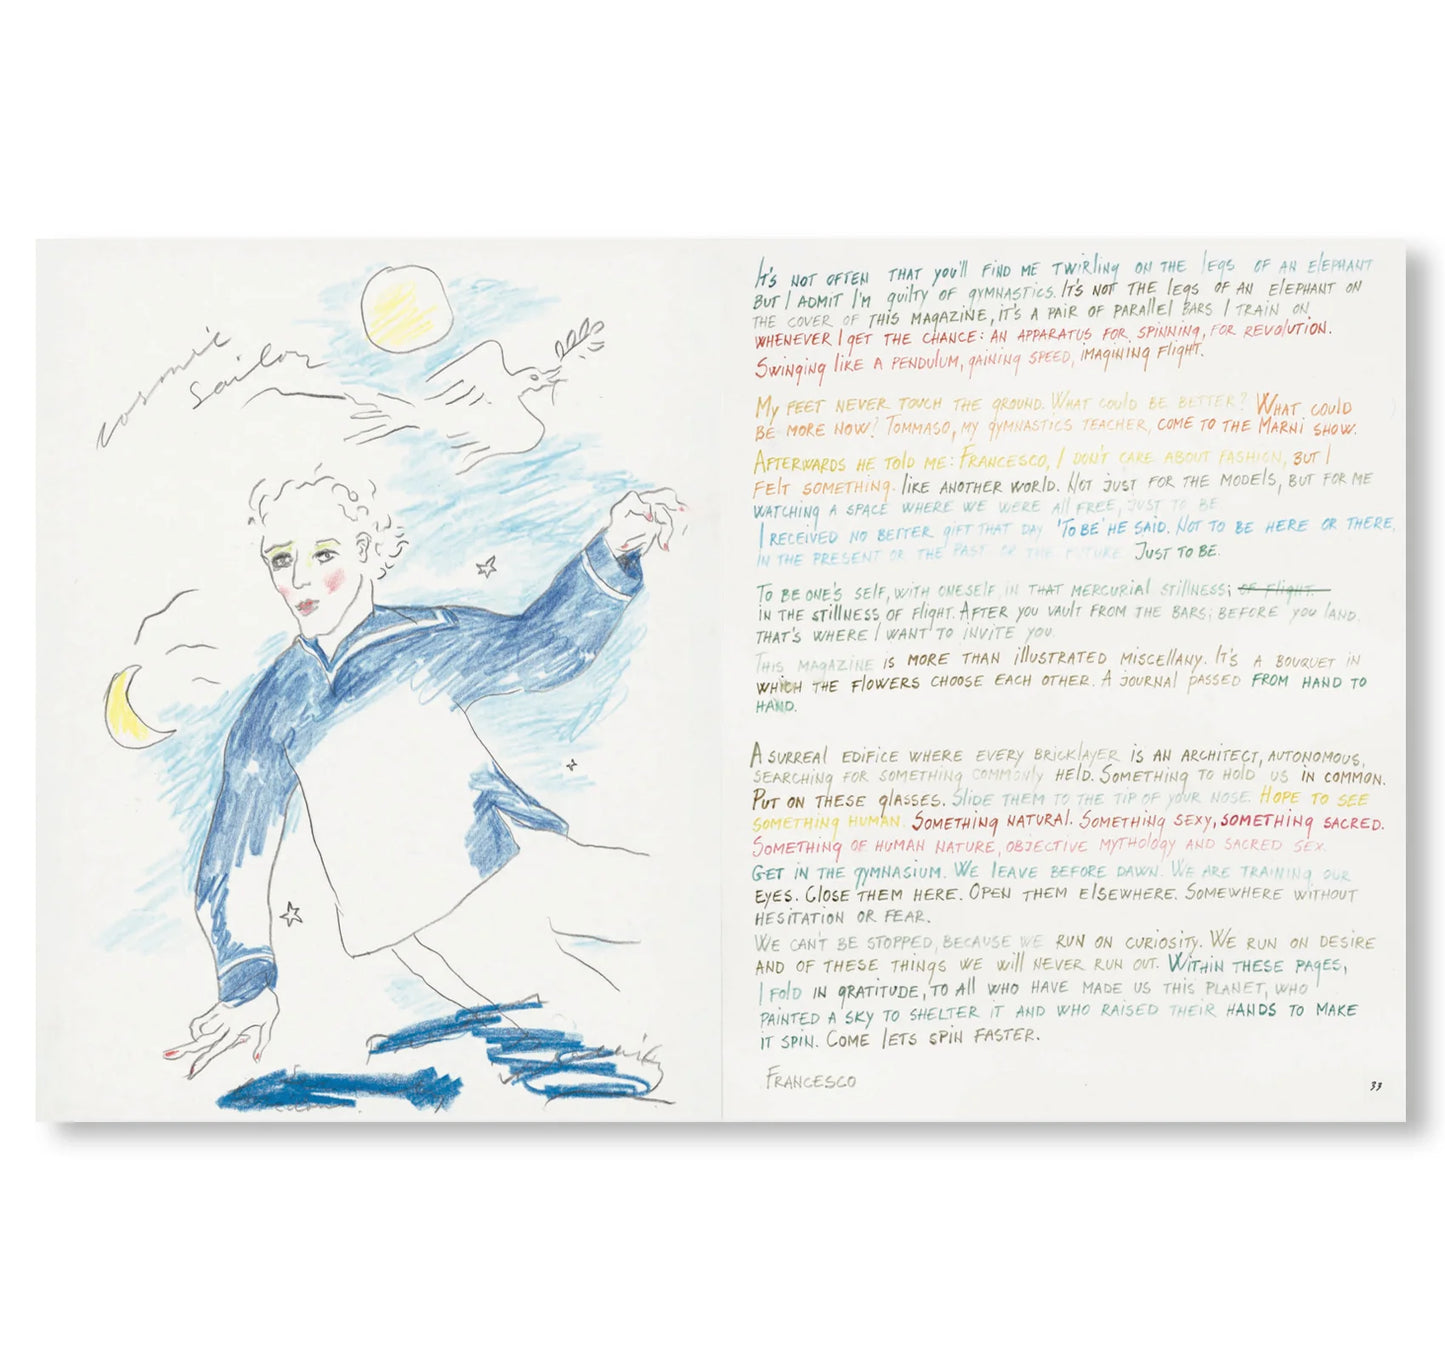 cosmic
sailor
It's not often that you'll find me twirling on the legs of an elephant
but I admit I'm guilty of gymnastics. It's not the legs of an elephant on
the cover of this magazine, it's a pair of parallel bars I train on
whenever I get the chance: an apparatus for spinning, for revolution.
Swinging like a pendulum, gaining speed, imagining flight.
My feet never touch the ground. What could be better? What could
be more now? Tommaso, my gymnastics teacher, come to the Marni show.
Afterwards he told me: Francesco, I don't care about fashion, but I
felt something. like another world. Not just for the models, but for me
watching a space where we were all free, just to be.
I received no better gift that day 'To be' he said. Not to be here or there,
in the present or the past or the future. Just to be.
To be one's self, with oneself, in that mercurial stillness; of flight.
in the stillness of flight. After you vault from the bars; before you land.
That's where I want to invite you.
This magazine is more than illustrated miscellany. It's a bouquet in
which the flowers choose each other. A journal passed from hand to
hand.
A surreal edifice where every bricklayer is an architect, autonomous,
searching for something commonly held. Something to hold us in common.
Put on these glasses. Slide them to the tip of your nose. Hope to see
something human. Something natural. Something sexy, something sacred.
Something of human nature, objective mythology and sacred sex.
Get in the gymnasium. We leave before dawn. We are training our
eyes. Close them here. Open them elsewhere. Somewhere without
hesitation or fear.
We can't be stopped, because we run on curiosity. We run on desire
and of these things we will never run out. Within these pages,
I fold in gratitude, to all who have made us this planet, who
painted a sky to shelter it and who raised their hands to make
it spin. Come lets spin faster.
Francesco
33